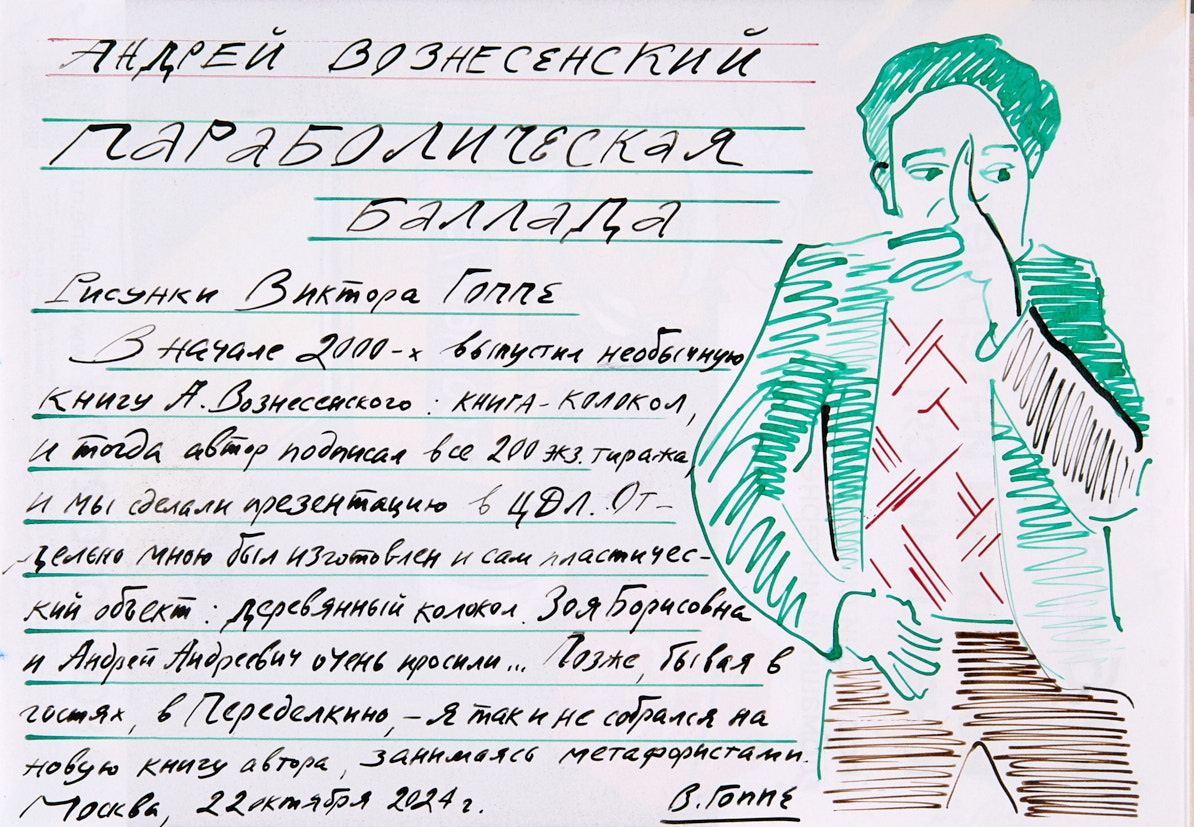 АНДРЕЙ ВОЗНЕСЕНСКИЙ
ПАРАБОЛИЧЕСКАЯ
БАЛЛАДА
Рисунки Виктора Гоппе
В начале 2000-х выпустил необычную
книгу А. Вознесенского: книга-колокол,
и тогда автор подписал все 200 экз. тиража,
и мы сделали презентацию в ЦДЛ. От-
дельно мною был изготовлен и сам пластичес-
кий объект: деревянный колокол. Зоя Борисовна
и Андрей Андреевич очень просили... Позже, бывая в
гостях, в Переделкино, – я так и не собрался на
новую книгу автора, занимаясь метафористами.
Москва, 22 октября 2024 г. В. Гоппе